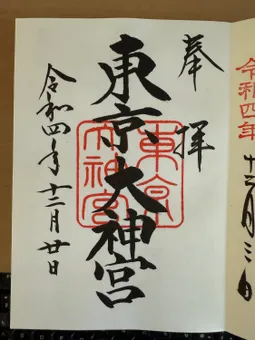 令和四年
十二月三日
奉拝
東京大神宮
東京大神宮
令和四年十二月廿日